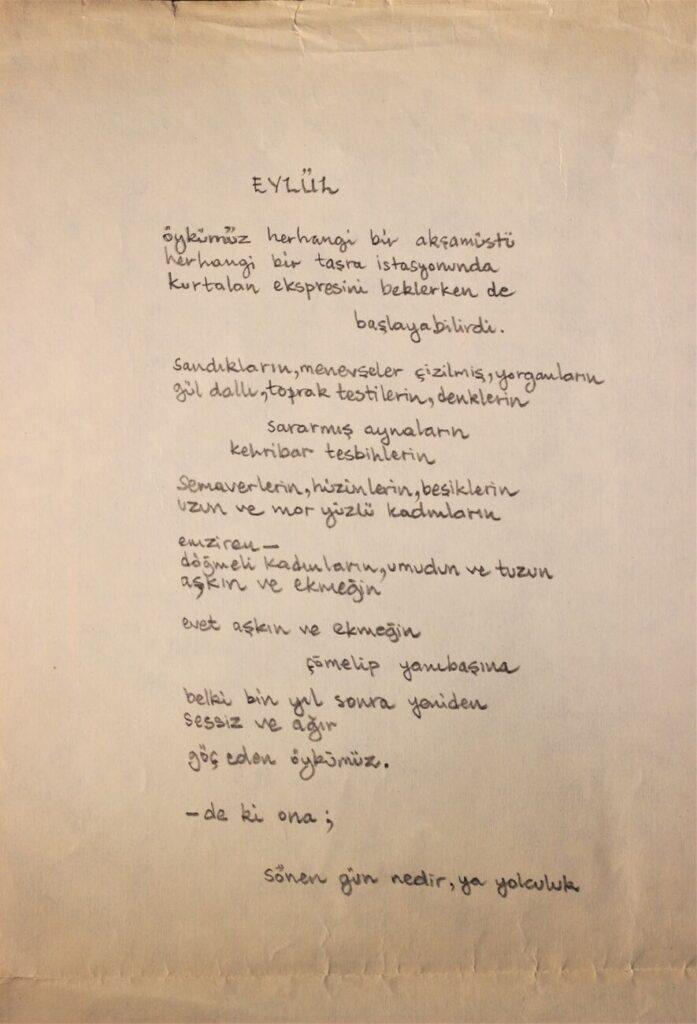 EYLÜL
öykümüz herhangi bir akşamüstü
herhangi bir taşra istasyonunda
kurtalan ekspresini beklerken de
başlayabilirdi.
sandıkların, menevşeler çizilmiş, yorganların
gül dallı, toprak testilerin, denklerin
sararmış aynaların
kehribar tesbihlerin
semaverlerin, hüzünlerin, beşiklerin
uzun ve mor yüzlü kadınların
emziren—
döğmeli kadınların, umudun ve tuzun
aşkın ve ekmeğin
evet aşkın ve ekmeğin
çömelip yanıbaşına
belki bin yıl sonra yeniden
sessiz ve ağır
göç eden öykümüz.
—de ki ona;
sönen gün nedir, ya yolculuk